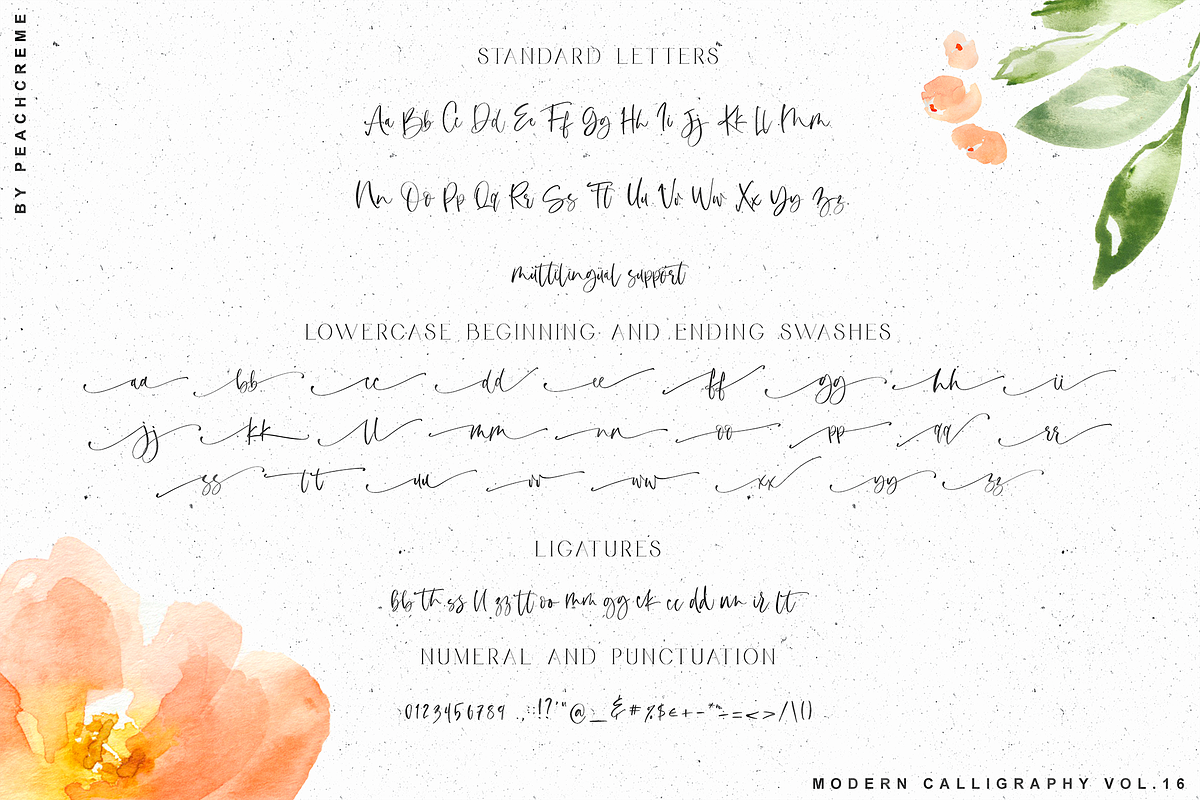 BY PEACHCREME
STANDARD LETTERS
Aa Bb Cc Dd Ee Ff Gg Hh Ii Jj Kk Ll Mm
Nn Oo Pp Qq Rr Ss Tt Uu Vv Ww Xx Yy Zz
LOWERCASE BEGINNING AND ENDING SWASHES
aa bb cc dd ee ff gg hh ii
jj kk ll mm nn oo pp qq rr
ss tt uu vv ww xx yy zz
support
LIGATURES
bb th ss ll zz tt oo mm gg ck cc dd nn ir lt
NUMERAL AND PUNCTUATION
0123456789 .,:;!?'"@_&#%$€+-*÷=<>/\()
MODERN CALLIGRAPHY VOL.16